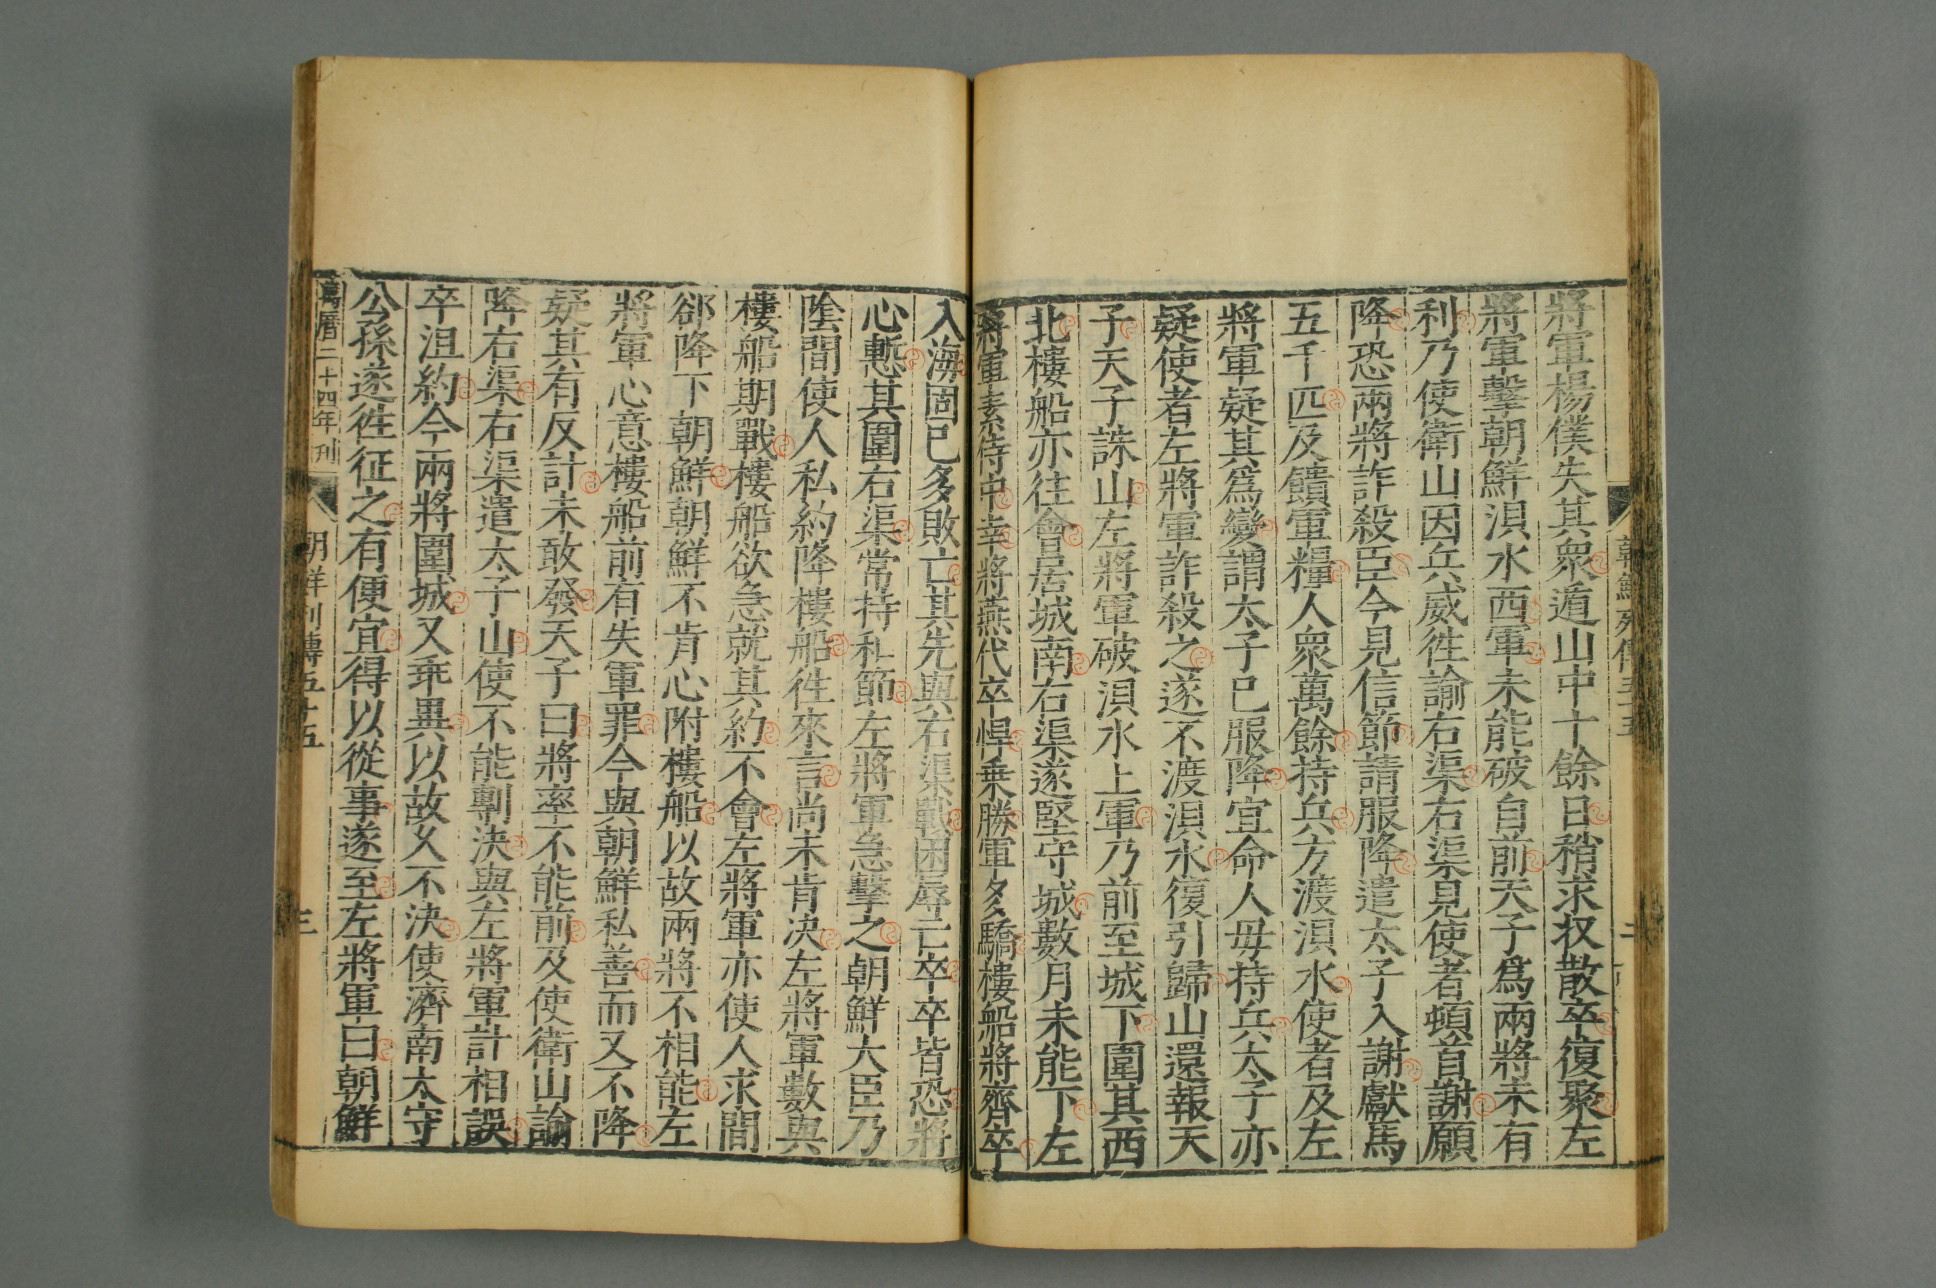 朝鮮列傳五十五
二
將軍楊僕失其衆遁山中十餘日稍求収散卒復聚左
將軍擊朝鮮浿水西軍未能破自前天子爲兩將未有
利乃使衛山因兵威徃諭右渠右渠見使者頓首謝願
降恐兩將詐殺臣今見信節請服降遣太子入謝獻馬
五千匹及饋軍糧人衆萬餘持兵方渡浿水使者及左
將軍疑其爲變謂太子已服降宜命人毋持兵太子亦
疑使者左將軍詐殺之遂不渡浿水復引歸山還報天
子天子誅山左將軍破浿水上軍乃前至城下圍其西
北樓船亦往會居城南右渠遂堅守城數月未能下左
將軍素侍中幸將燕代卒悍乗勝軍多驕樓船將齊卒
入海固已多敗亡其先與右渠戰困辱亡卒卒皆恐將
心慙其圍右渠常持和節左將軍急擊之朝鮮大臣乃
陰間使人私約降樓船徃來言尚未肯決左將軍數與
樓船期戰樓船欲急就其約不會左將軍亦使人求間
郤降下朝鮮朝鮮不肯心附樓船以故兩將不相能左
將軍心意樓船前有失軍罪今與朝鮮私善而又不降
疑其有反計未敢發天子曰將率不能前及使衛山諭
降右渠右渠遣太子山使不能剸決與左將軍計相誤
卒沮約今兩將圍城又乖異以故久不決使濟南太守
公孫遂徃征之有便宜得以從事遂至左將軍曰朝鮮
萬曆二十四年刊
朝鮮列傳五十五
三